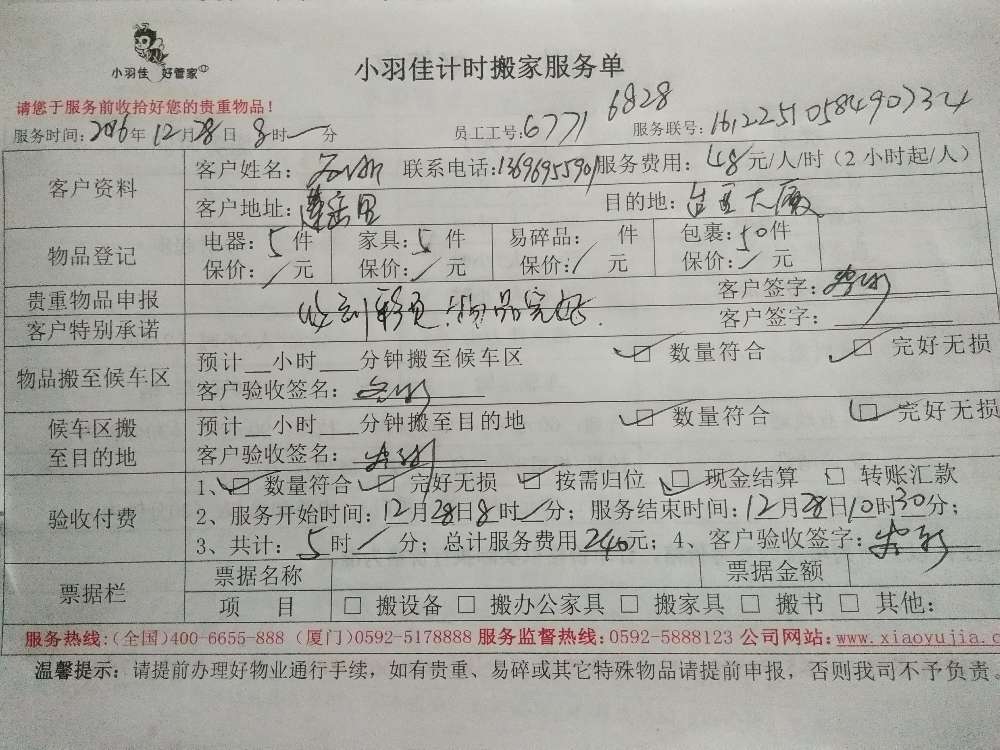 小羽佳 好管家
小羽佳计时搬家服务单
请您于服务前收拾好您的贵重物品!
6828
服务时间: 2016年 12月 28日 8时 — 分 员工工号: 6771 服务联号: 16122510584907334
客户资料
客户姓名: 联系电话: 13696955901 服务费用: 48元/人/时（2小时起/人）
客户地址: 莲岳里 目的地: 台亚大厦
物品登记
电器: 5件 家具: 5件 易碎品: / 件 包裹: 50件
保价: / 元 保价: / 元 保价: / 元 保价: / 元
贵重物品申报 客户签字:
收到 物品完好.
客户特别承诺 客户签字:
物品搬至候车区
预计__小时___分钟搬至候车区 ☑ 数量符合 ☑ 完好无损
客户验收签名:
候车区搬至目的地
预计__小时___分钟搬至目的地 ☑ 数量符合 ☑ 完好无损
客户验收签名:
验收付费
1、☑ 数量符合 ☑ 完好无损 ☑ 按需归位 ☑ 现金结算 □ 转账汇款
2、服务开始时间: 12月28日8时/分; 服务结束时间: 12月28日10时30分;
3、共计: 5时/分; 总计服务费用240元; 4、客户验收签字:
票据栏
票据名称 票据金额
项 目 □ 搬设备 □ 搬办公家具 □ 搬家具 □ 搬书 □ 其他:
服务热线:(全国)400-6655-888 (厦门)0592-5178888 服务监督热线:0592-5888123 公司网站:www.xiaoyujia.c
温馨提示: 请提前办理好物业通行手续，如有贵重、易碎或其它特殊物品请提前申报，否则我司不予负责。